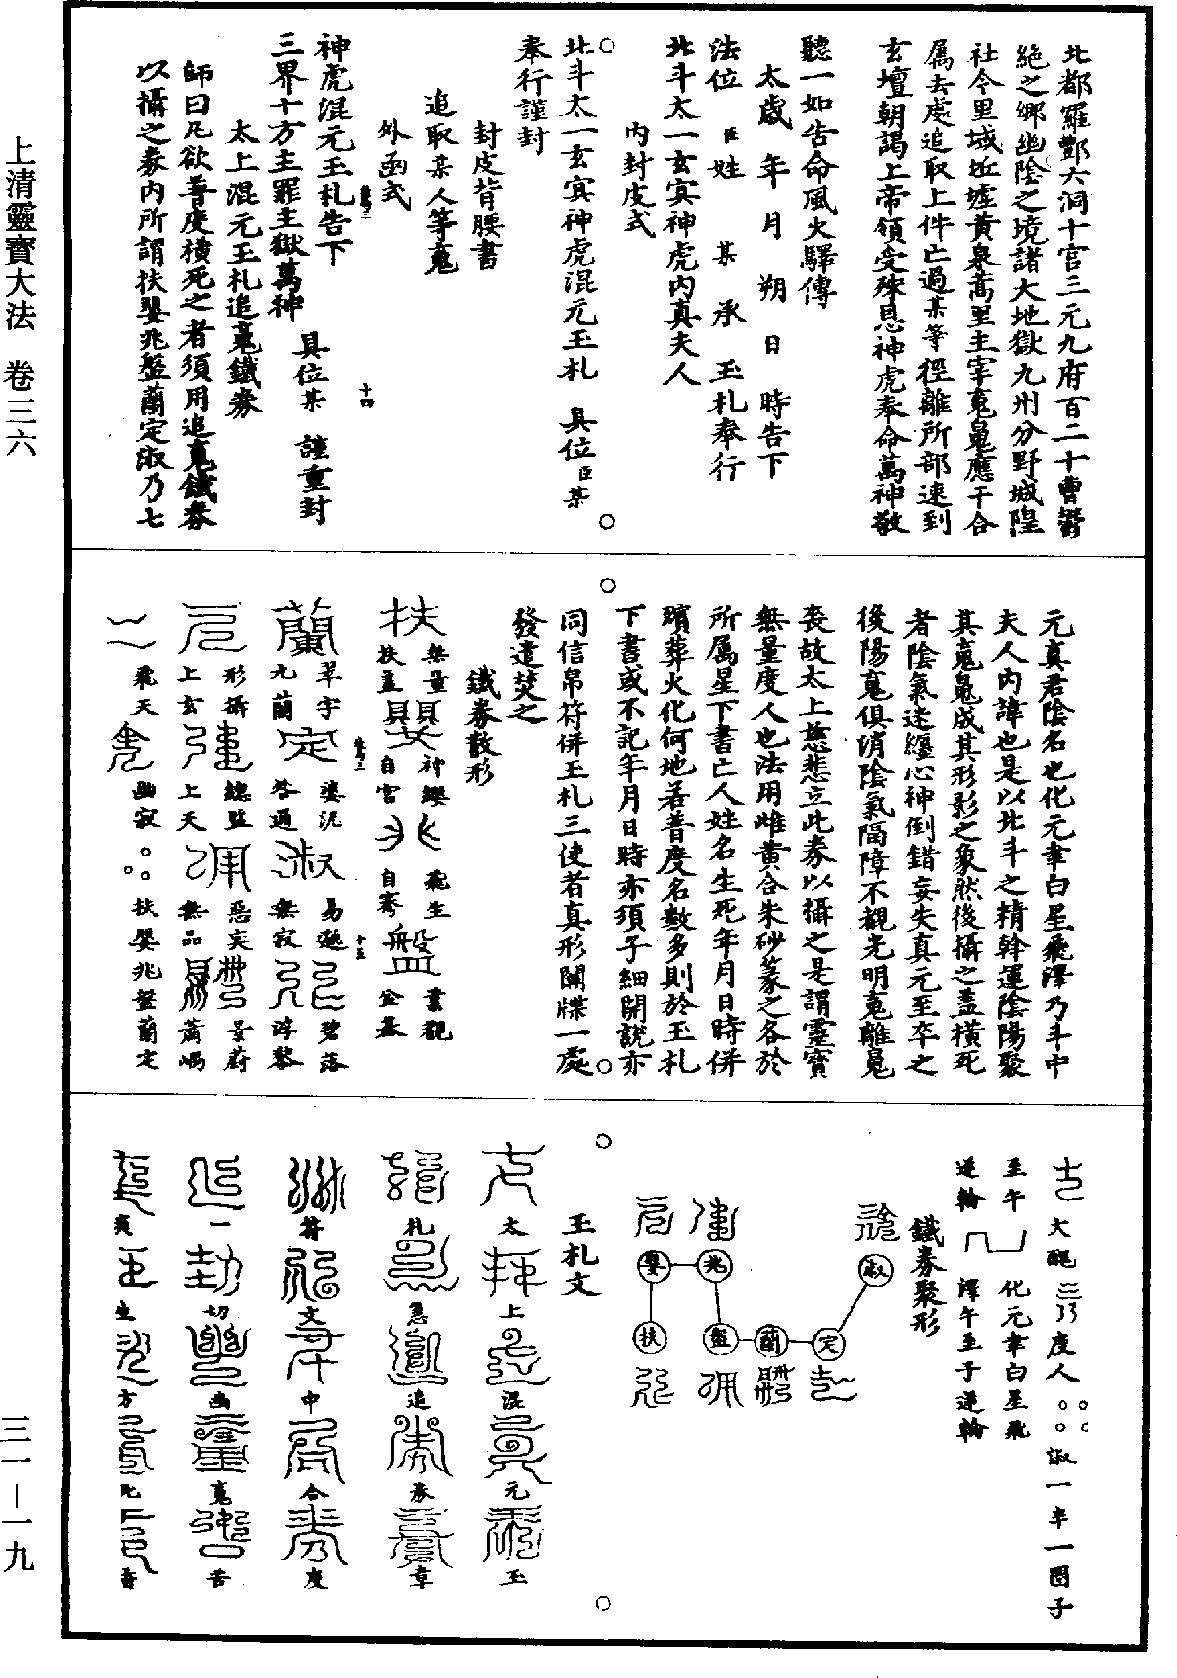 上清靈寶大法　卷三六
三一—一九
北都羅酆六洞十宮三元九府百二十曹鬱
絕之鄉幽陰之境諸大地獄九州分野城隍
社令里域丘墟黃泉蒿里主宰䰟鬼應干合
属去處追取上件亡過某等徑離所部速到
玄壇朝謁上帝領受殊恩神虎奉命萬神敬
聽一如告命風火驛傳
太歲　年　月　朔　日　時告下
法位　臣姓　某　承　玉札奉行
北斗太一玄冥神虎內真夫人
內封皮式
北斗太一玄冥神虎混元玉札　具位臣某
奉行謹封
封皮背腰書
追取某人等䰟
外函式
神虎混元玉札告下
三界十方主罪主獄萬神
具位某　謹重封
十四
太上混元玉札追䰟鐵券
師曰凡欲普度橫死之者須用追䰟鐵券
以攝之券內所謂扶嬰兆盤蘭定淑乃七
元真君陰名也化元聿白星飛澤乃斗中
夫人內諱也是以北斗之精斡運陰陽聚
其䰟鬼成其形影之象然後攝之蓋橫死
者陰氣迷纏心神倒錯妄失真元至卒之
後陽䰟俱消陰氣隔障不覩光明䰟離鬼
喪故太上慈悲立此券以攝之是謂靈寶
無量度人也法用雌黃合朱砂篆之各於
所属星下書亡人姓名生死年月日時併
殯葬火化何地若普度名數多則於玉札
下書或不記年月日時亦須子細開說亦
同信帛符併玉札三使者真形關牒一處
發遣焚之
鐵券散形
扶
無量
扶蓋
嬰
神纓
自宮
兆
飛生
自騫
盤
雲觀
蘭
翠宇
元蘭
定
婆泥
答過
淑
易邈
無寂
碧落
浮黎
十五
形攝
上玄
總監
上天
惡奕
無品
景蔚
蕭嵎
飛天
幽寂
扶嬰兆盤蘭定
大醜
度人
淑一年一圈子
至午
化元聿白星飛
逆輪
澤午至子逆輪
鐵券聚形
嬰
兆
淑
扶
盤
蘭
定
玉札文
太
上
混
元
玉
札
急
追
券
章
符
文
中
合
度
一
切
幽
䰟
苦
爽
生
方
死